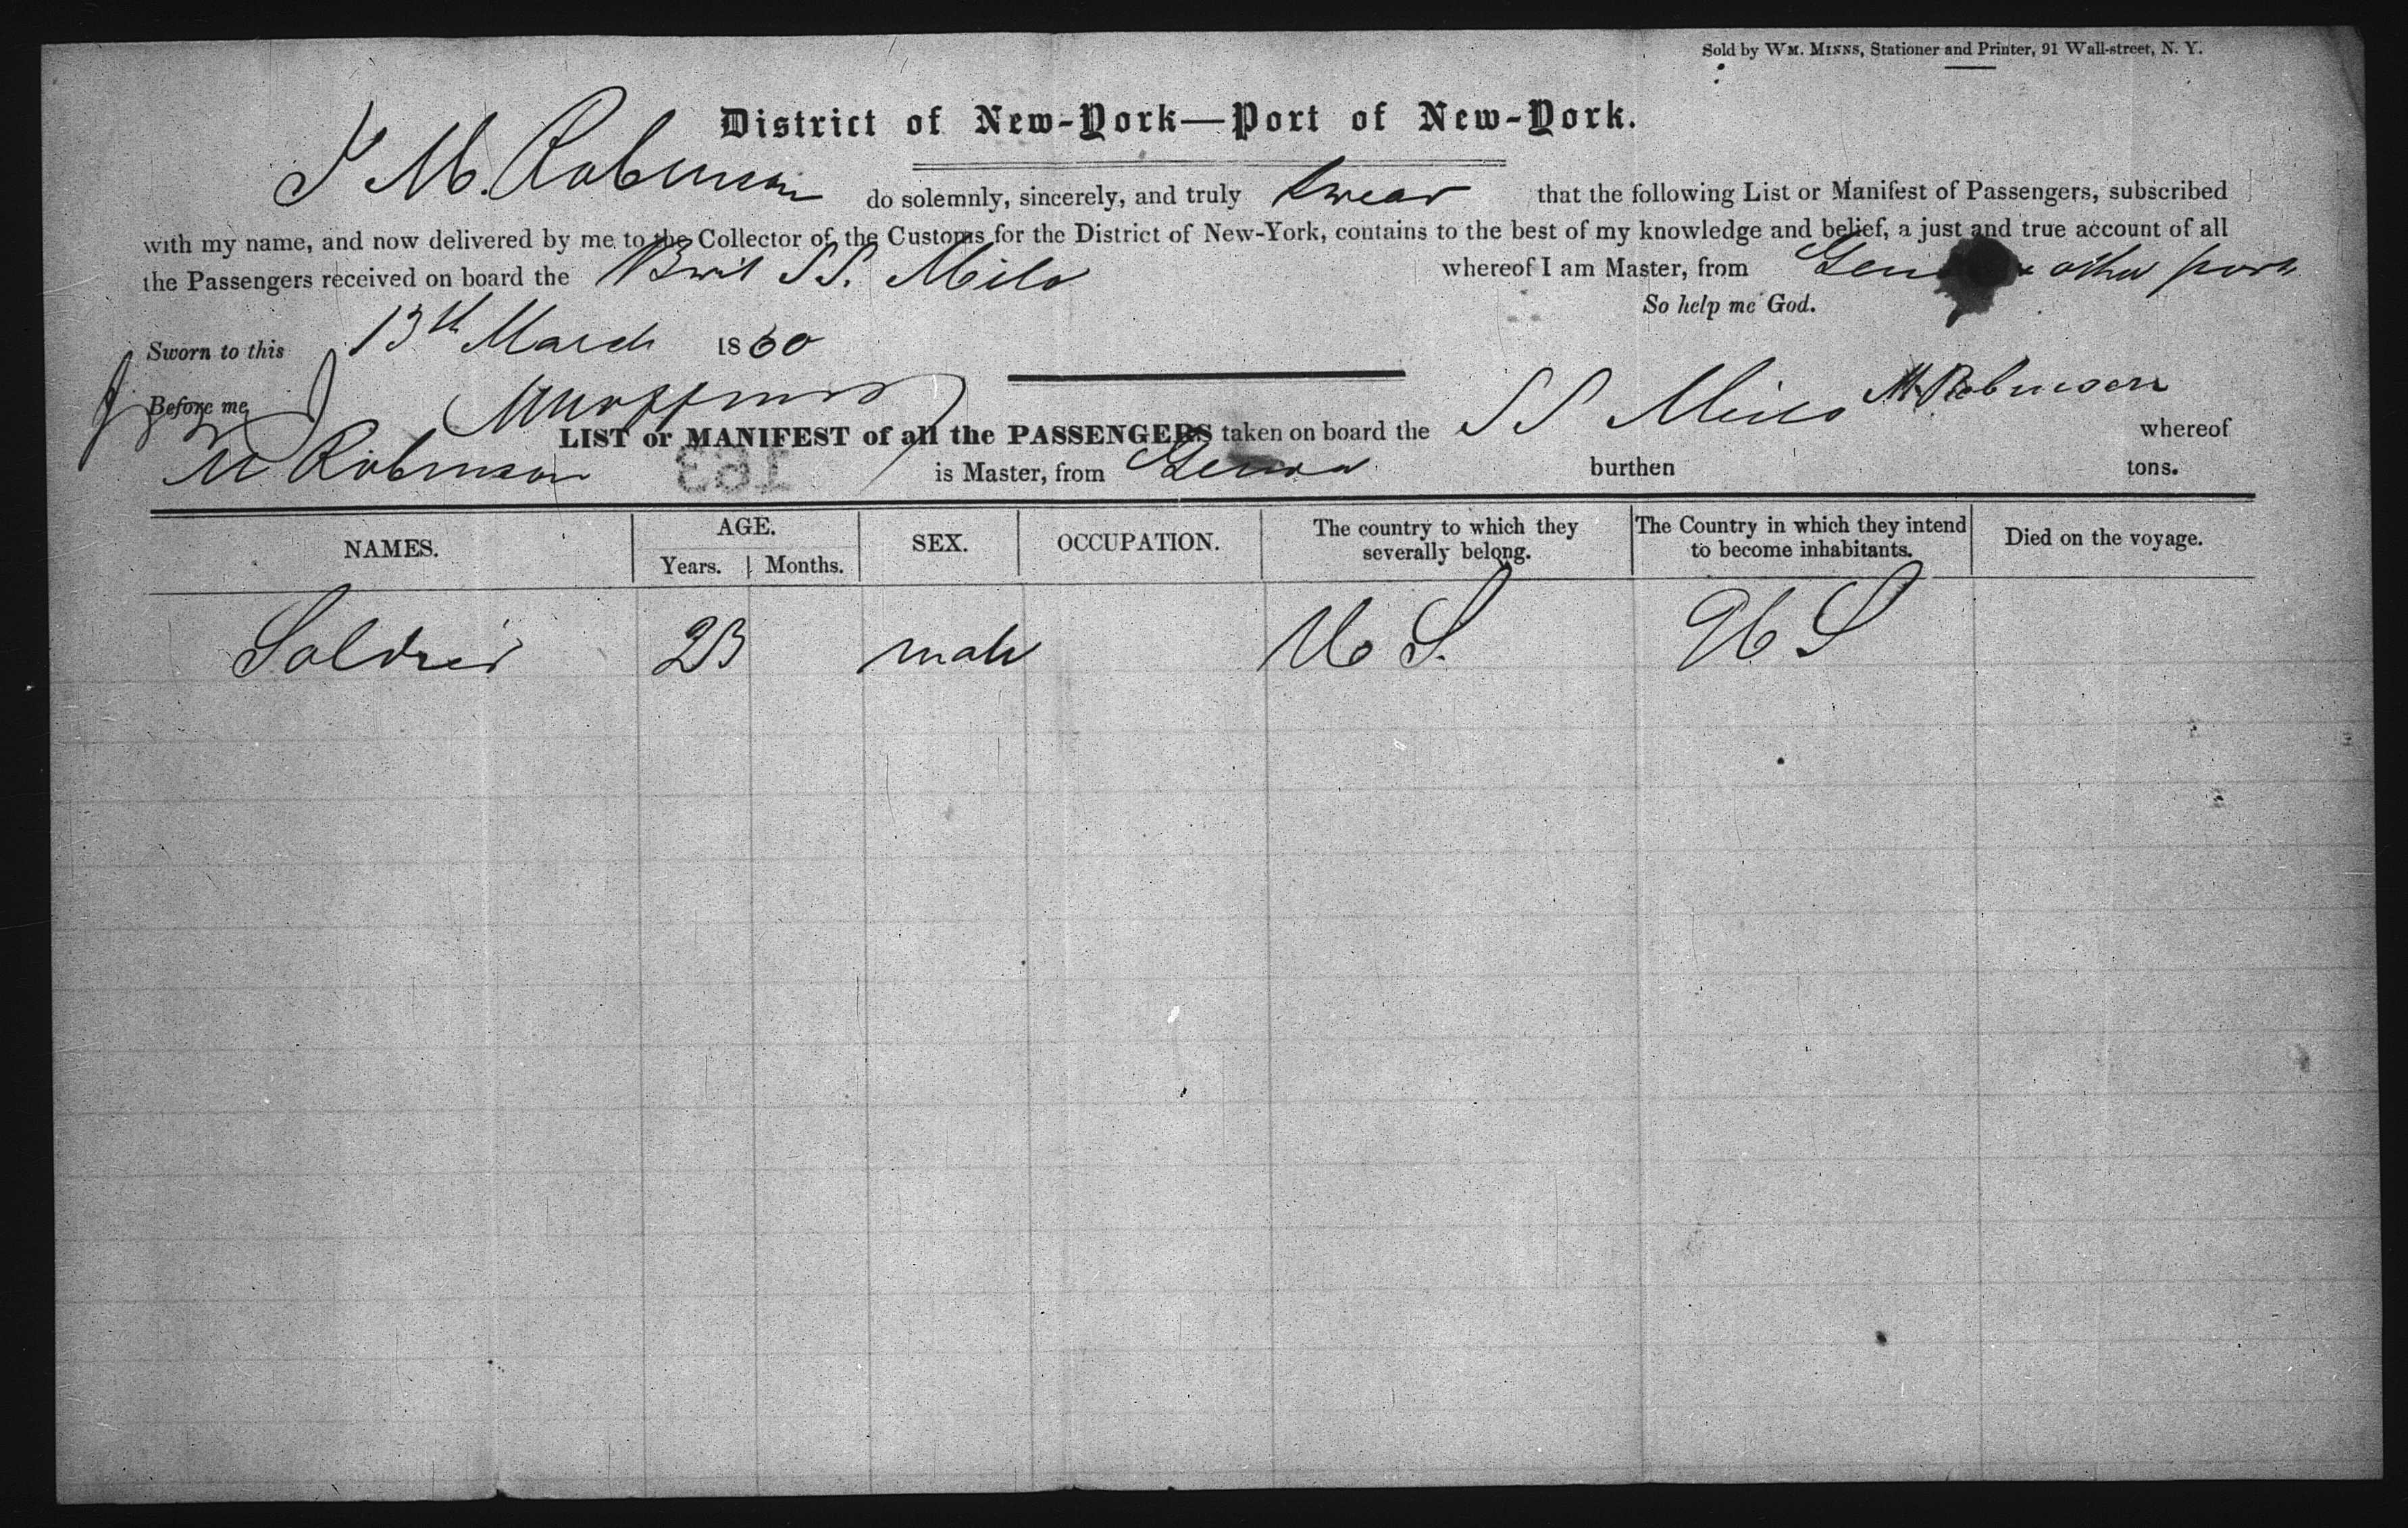 Sold by WM. MINNS, Stationer and Printer, 91 Wall-street, N. Y.
District of New-York—Port of New-York.
I M. Robinson do solemnly, sincerely, and truly swear that the following List or Manifest of Passengers, subscribed
with my name, and now delivered by me to the Collector of the Customs for the District of New-York, contains to the best of my knowledge and belief, a just and true account of all
the Passengers received on board the Brit SS. Milo whereof I am Master, from Genoa & other ports
So help me God.
Sworn to this 13th March 1860
Before me
M Robinson
LIST or MANIFEST of all the PASSENGERS taken on board the SS Milo M Robinson whereof
is Master, from Genoa burthen tons.
NAMES. AGE. SEX. OCCUPATION. The country to which they severally belong. The Country in which they intend to become inhabitants. Died on the voyage.
Years. Months.
Soldier 23 male U S. U S